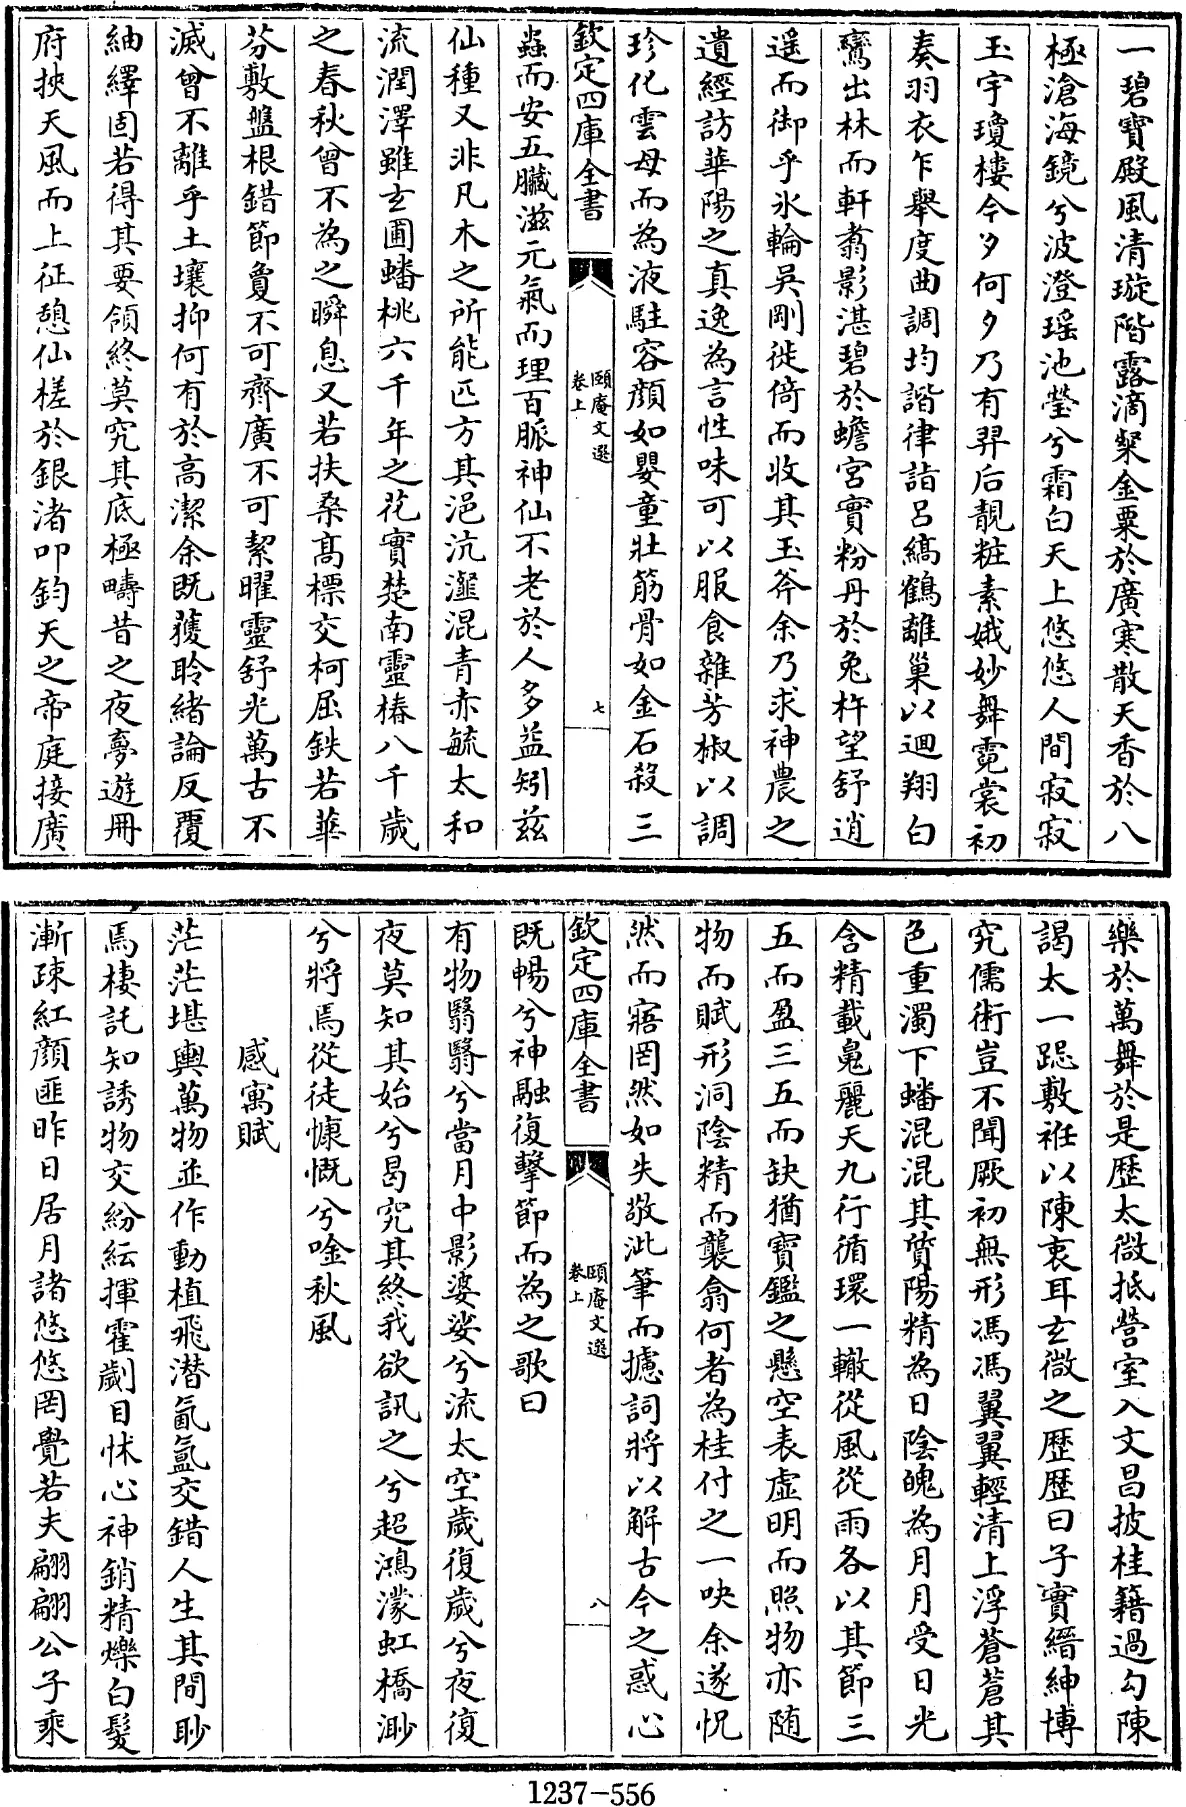 一碧寶殿風清璇階露滴粲金粟於廣寒散天香於八
極滄海鏡兮波澄瑶池瑩兮霜白天上悠悠人間寂寂
玉宇瓊樓今夕何夕乃有羿后靚粧素娥妙舞霓裳初
奏羽衣乍舉度曲調均諧律詣呂縞鶴離巢以迴翔白
鸞出林而軒翥影湛碧於蟾宮實粉丹於兔杵望舒逍
遥而御乎氷輪吳剛徙倚而收其玉斧余乃求神農之
遺經訪華陽之真逸為言性味可以服食雜芳椒以調
珍化雲母而為液駐容顔如嬰童壯筋骨如金石殺三
欽定四庫全書
頤庵文選
卷上
七
蟲而安五臟滋元氣而理百脈神仙不老於人多益矧兹
仙種又非凡木之所能匹方其浥沆瀣混青赤毓太和
流潤澤雖玄圃蟠桃六千年之花實楚南靈椿八千歲
之春秋曾不為之瞬息又若扶桑髙標交柯屈鉄若華
芬敷盤根錯節敻不可齊廣不可絜曜靈舒光萬古不
滅曾不離乎土壤抑何有於高潔余既獲聆緒論反覆
紬繹固若得其要領終莫究其底極疇昔之夜夢遊册
府挾天風而上征憩仙槎於銀渚叩鈞天之帝庭接廣
樂於萬舞於是歷太微抵營室入文昌披桂籍過勾陳
謁太一跽敷衽以陳衷耳玄微之歴歴曰子實縉紳博
究儒術豈不聞厥初無形馮馮翼翼輕清上浮蒼蒼其
色重濁下蟠混混其質陽精為日陰魄為月月受日光
含精載鬼麗天九行循環一轍從風從雨各以其節三
五而盈三五而缺猶寶鑑之懸空表虛明而照物亦随
物而賦形洞陰精而襲翕何者為桂付之一吷余遂怳
然而寤罔然如失敬泚筆而攄詞將以解古今之惑心
欽定四庫全書
頤庵文選
卷上
八
既暢兮神融復擊節而為之歌曰
有物翳翳兮當月中影婆娑兮流太空歲復歲兮夜復
夜莫知其始兮曷究其終我欲訊之兮超鴻濛虹橋渺
兮將焉從徒慷慨兮唫秋風
感寓賦
茫茫堪輿萬物並作動植飛潜氤氳交錯人生其間眇
焉棲託知誘物交紛紜揮霍劌目怵心神銷精爍白髮
漸疎紅顔匪昨日居月諸悠悠罔覺若夫翩翩公子乘
1237-556